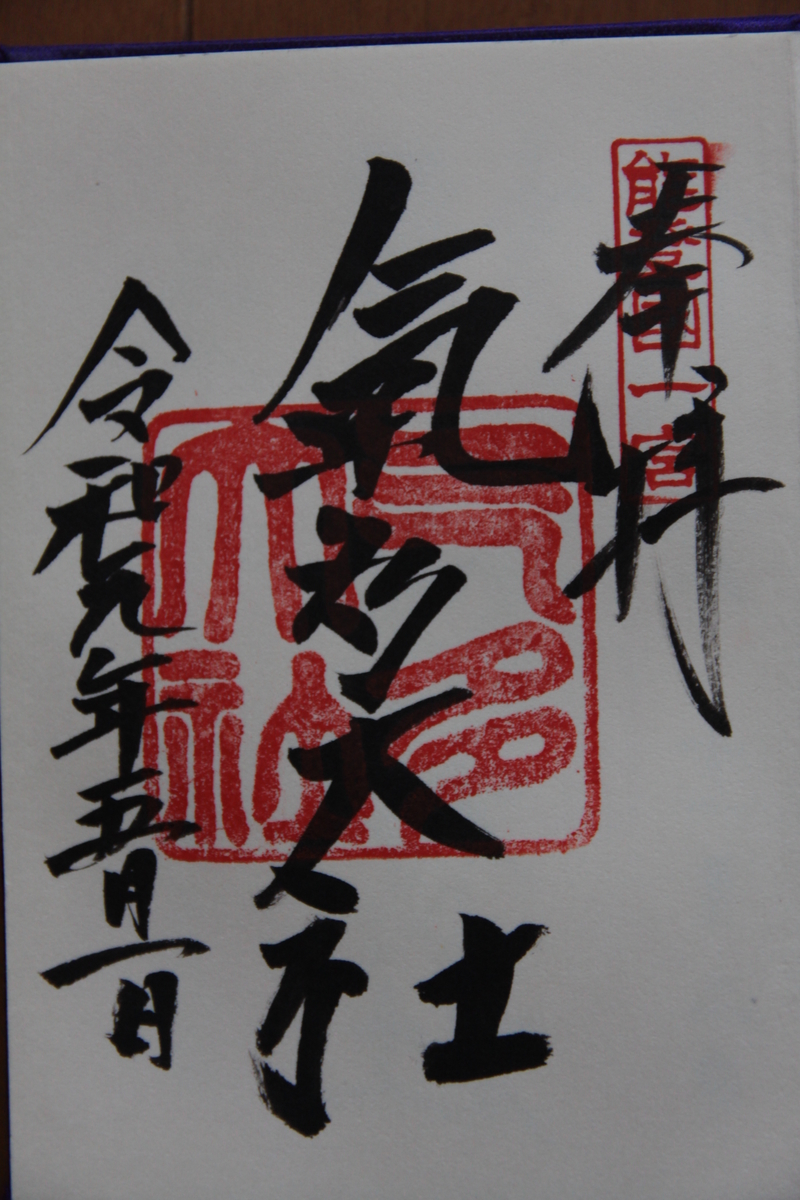 奉拝
能登國一宮
氣多大社
令和元年五月一日